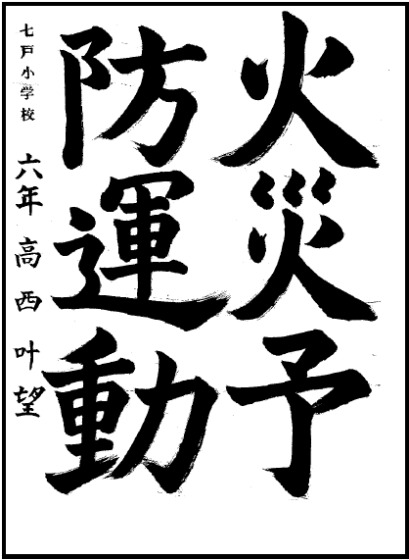 火災予
防運動
七戸小学校 六年 高西叶望